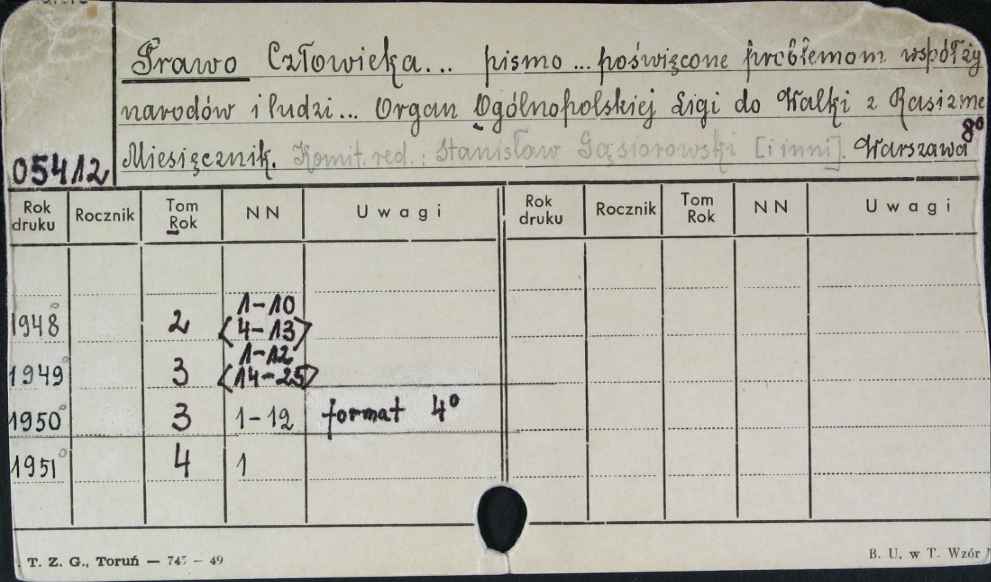 Prawo Człowieka... pismo ... poświęcone problemom współży
narodów i ludzi... Organ Ogólnopolskiej Ligi do Walki z Rasizme
8°
Miesięcznik. Komit. red.: Stanisław Gąsiorowski [i inni]. Warszawa
05412
Rok druku Rocznik Tom Rok NN Uwagi Rok druku Rocznik Tom Rok NN Uwagi
1948° 2 1-10 <4-13>
1949° 3 1-12 <14-25>
1950° 3 1-12 format 4°
1951° 4 1
T. Z. G., Toruń — 745 — 49
B. U. w T. Wzór